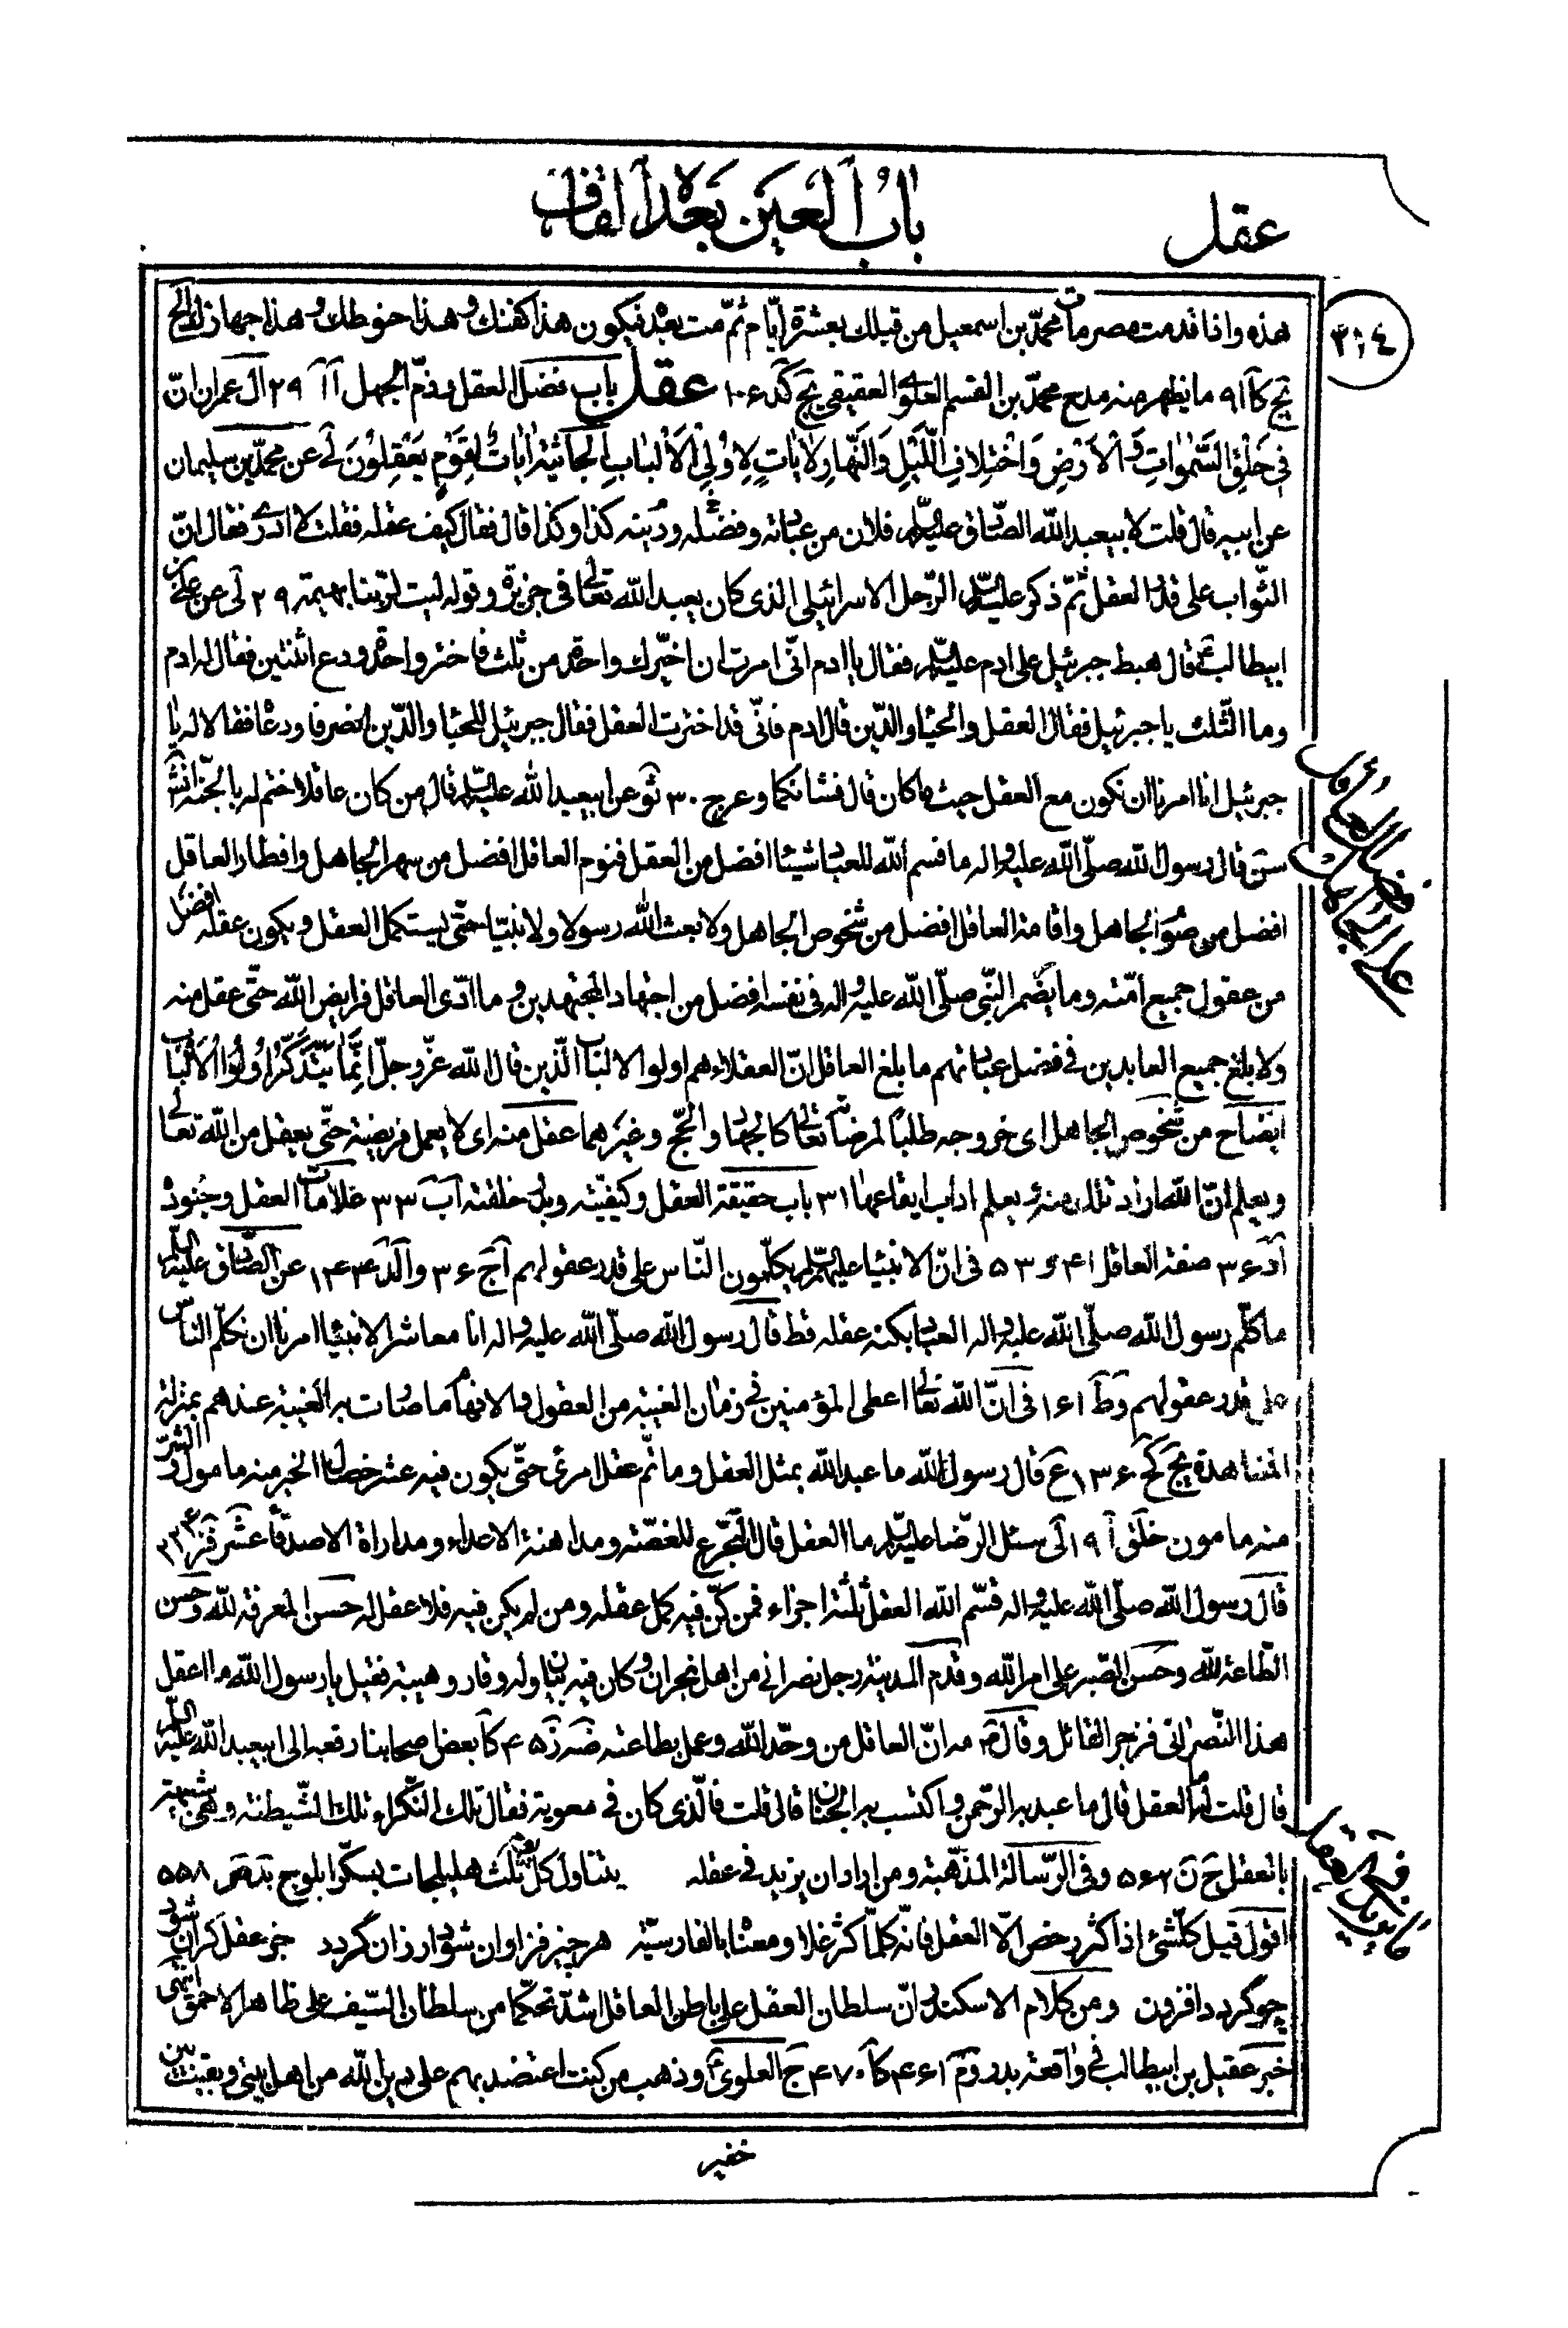 عقل
باب العين بعده القاف
هذه وانا قدمت مصر مات محمّد بن اسمعيل من قبلك بعشرة ايّام ثمّ مت بعد فيكون هذا كفنك وهذا حنوطك وهذا جهازك الخ
يج كآ ٩١ ما يظهر منه مدح محمّد بن القسم العلوي العقيقي يج كد ١٠٦ عقل باب فضل العقل وذمّ الجهل آ آ ٢٩ ال عمران انّ
في خلق السّموات والارض واختلاف اللّيل والنّهار لايات لاولي الالباب الجاثية ايات لقوم يعقلون لي عن محمّد بن سليمان
عن ابيه قال قلت لابيعبد الله الصّادق عليه السّلم فلان من عبادته وفضله ودينه كذا وكذا قال فقال كيف عقله فقلت لا ادري فقال انّ
الثّواب على قدر العقل ثمّ ذكر عليه السّلم الرّجل الاسرائيلي الذي كان يعبد الله تعالى في جزيرة وقوله ليت لربّنا بهيمة ٢٩ لى عن علي بن
ابيطالب ع قال هبط جبرئيل على ادم عليه السّلم فقال يا ادم انّي امرت ان اخيّرك واحدة من ثلث فاختر واحدة ودع اثنتين فقال له ادم
وما الثّلث يا جبرئيل فقال العقل والحيا والدّين قال ادم فانّي قد اخترت العقل فقال جبرئيل للحيا والدّين انصرفا ودعاه فقالا له يا
جبرئيل انا امرنا ان نكون مع العقل حيث ما كان قال فشانكما وعرج ٣٠ ثو عن ابيعبد الله عليه السّلم قال من كان عاقلا ختم له بالجنّة انشآ
سن قال رسول الله صلّى الله عليه واله ما قسم الله للعباد شيئا افضل من العقل فنوم العاقل افضل من سهر الجاهل وافطار العاقل
افضل من صوم الجاهل واقامة العاقل افضل من شخوص الجاهل ولا بعث الله رسولا ولا نبيّا حتّى يستكمل العقل ويكون عقله افضل
من عقول جميع امّته وما يضمر النّبي صلّى الله عليه واله في نفسه افضل من اجتهاد المجتهدين وما ادّى العاقل فرايض الله حتّى عقل منه
ولا بلغ جميع العابدين في فضل عبادتهم ما بلغ العاقل انّ العقلاء هم اولوا الالباب الّذين قال الله عزّ وجلّ انّما يتذكّر اولوا الالباب
ايضاح من شخوص الجاهل اى خروجه طلبا لمرضاته تعالى كالجهاد والحجّ وغيرهما عقل منه اى لا يعمل فريضة حتّى يعقل من الله تعالى
ويعلم انّ الله اراد تلك منه ويعلم اداب ايقاعها ٣١ باب حقيقة العقل وكيفيّته وبدو خلقته آب ٣٣ علامات العقل وجنوده
آد ٣٦ صفة العاقل ٤١ و ٥٣ في انّ الانبيا عليهم السّلم يكلّمون النّاس على قدر عقولهم آج ٣٦ والد ١٤٤ عن الصّادق عليه السّلم
ما كلّم رسول الله صلّى الله عليه واله العباد بكنه عقله قط قال رسول الله صلّى الله عليه واله انا معاشر الانبيا امرنا ان نكلّم النّاس
على قدر عقولهم وط آ ١٦١ في انّ الله تعالى اعطى المؤمنين في زمان الغيبة من العقول والافهام ما صارت به الغيبة عندهم بمنزلة
المشاهدة يج كج ١٣٦ ع قال رسول الله ما عبد الله بمثل العقل وما تمّ عقل امرئ حتّى يكون فيه عشر خصال الخير منه مامول والشرّ
منه مامون خلق آ ١٩ لى سئل الرّضا عليه السّلم ما العقل قال التجرّع للغصّة ومداهنة الاعداء ومداراة الاصدقاء عشر
قال رسول الله صلّى الله عليه واله قسّم الله العقل ثلثة اجزاء فمن كنّ فيه كمل عقله ومن لم يكن فيه فلا عقل له حسن المعرفة لله وحسن
الطّاعة لله وحسن الصّبر على امر الله وقدم المدينة رجل نصراني من اهل نجران وكان فيه بيان وله وقار وهيبة فقيل يا رسول الله ما اعقل
هذا النّصراني فزجر القائل وقال مه انّ العاقل من وحّد الله وعمل بطاعته ضه ز ٤٥ كآ بعض اصحابنا رفعه الى ابيعبد الله عليه السّلم
قال قلت له ما العقل قال ما عبد به الرّحمن واكتسب به الجنان قال قلت فالّذى كان في معوية فقال تلك النّكراء تلك الشّيطنة وهى شبيهة
بالعقل ح ن ٥٦٢ وفي الرّسالة المذهّبة ومن اراد ان يزيد في عقله يتناول كلّ يوم ثلث هليلجات بسكّر ابلوج يد صر ٥٥٨
اقول قيل كلّشئ اذا كثر رخص الّا العقل فانّه كلّما كثر غلا ومعناه بالفارسيّة هر چيز فراوان شود ارزان گردد جز عقل گران شود
چو گردد افزون ومن كلام الاسكندر انّ سلطان العقل على باطن العاقل اشدّ تحكّما من سلطان السّيف على ظاهر الاحمق انتهى
خبر عقيل بن ابيطالب في واقعة بدر وم ٤٦١ كآ ٤٧٠ ج العلوي ع وذهب من كنت اعتضد بهم على دين الله من اهل بيتي وبقيت بين
خفير
فضل العاقل
على الجاهل